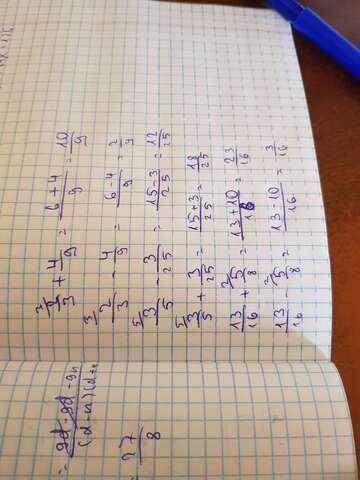 ³ 2/3 + 4/9 = (6+4)/9 = 10/9
³ 2/3 - 4/9 = (6-4)/9 = 2/9
⁵ 3/5 - 3/25 = (15-3)/25 = 12/25
⁵ 3/5 + 3/25 = (15+3)/25 = 18/25
13/16 + ² 5/8 = (13+10)/16 = 23/16
13/16 - ² 5/8 = (13-10)/16 = 3/16
= 9d-9d-9n
= 27/8